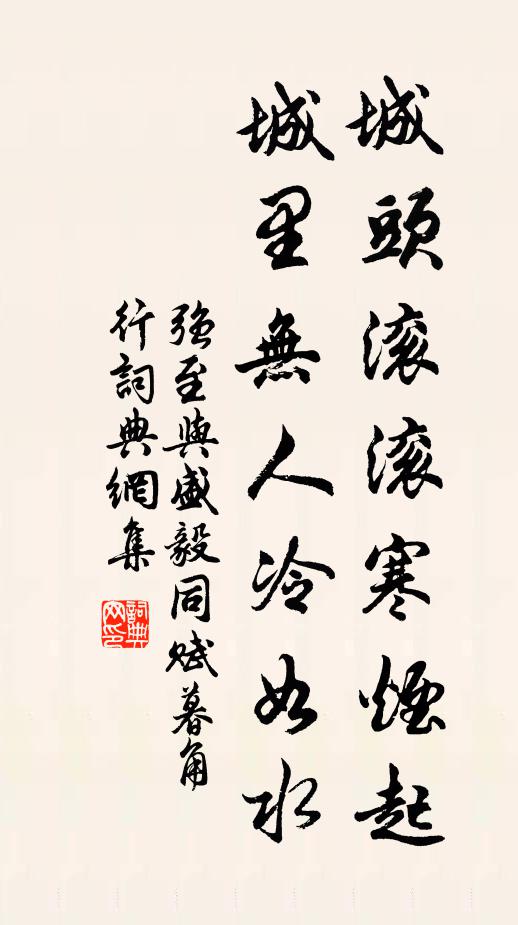 城頭滚滚寒煙起
城里無人冷如水
強至與盛毅同賦暮角
行詞典網集
詞典网印